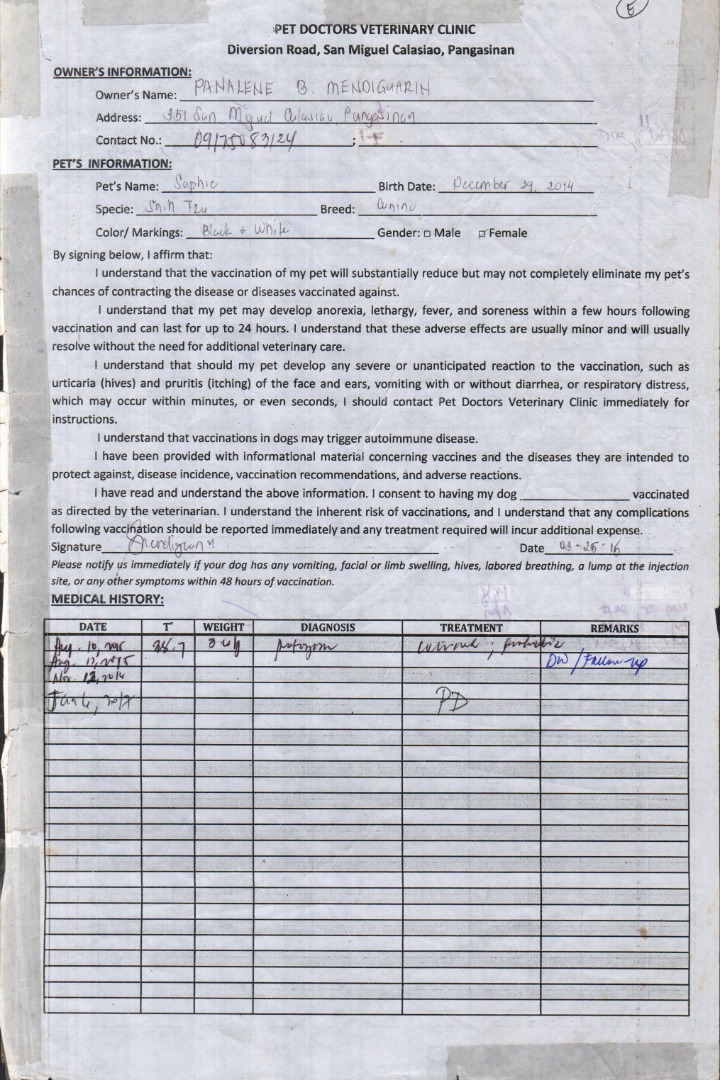 E
PET DOCTORS VETERINARY CLINIC
Diversion Road, San Miguel Calasiao, Pangasinan
OWNER'S INFORMATION:
Owner's Name: PANALENE B. MENDIGUARIN
Address: 351 San Miguel Calasiao, Pangasinan
Contact No.: 09175083124
PET'S INFORMATION:
Pet's Name: Sophie Birth Date: December 29, 2014
Specie: Shih Tzu Breed: Canine
Color/ Markings: Black + White Gender: □ Male ☑ Female
By signing below, I affirm that:
I understand that the vaccination of my pet will substantially reduce but may not completely eliminate my pet's
chances of contracting the disease or diseases vaccinated against.
I understand that my pet may develop anorexia, lethargy, fever, and soreness within a few hours following
vaccination and can last for up to 24 hours. I understand that these adverse effects are usually minor and will usually
resolve without the need for additional veterinary care.
I understand that should my pet develop any severe or unanticipated reaction to the vaccination, such as
urticaria (hives) and pruritis (itching) of the face and ears, vomiting with or without diarrhea, or respiratory distress,
which may occur within minutes, or even seconds, I should contact Pet Doctors Veterinary Clinic immediately for
instructions.
I understand that vaccinations in dogs may trigger autoimmune disease.
I have been provided with informational material concerning vaccines and the diseases they are intended to
protect against, disease incidence, vaccination recommendations, and adverse reactions.
I have read and understand the above information. I consent to having my dog ____________ vaccinated
as directed by the veterinarian. I understand the inherent risk of vaccinations, and I understand that any complications
following vaccination should be reported immediately and any treatment required will incur additional expense.
Signature Date 03-25-16
Please notify us immediately if your dog has any vomiting, facial or limb swelling, hives, labored breathing, a lump at the injection
site, or any other symptoms within 48 hours of vaccination.
MEDICAL HISTORY:
DATE T° WEIGHT DIAGNOSIS TREATMENT REMARKS
Aug. 10, 38.7
Aug. DW / Follow-up
Nov. 12, 2016
Jan 6, 2017 PD